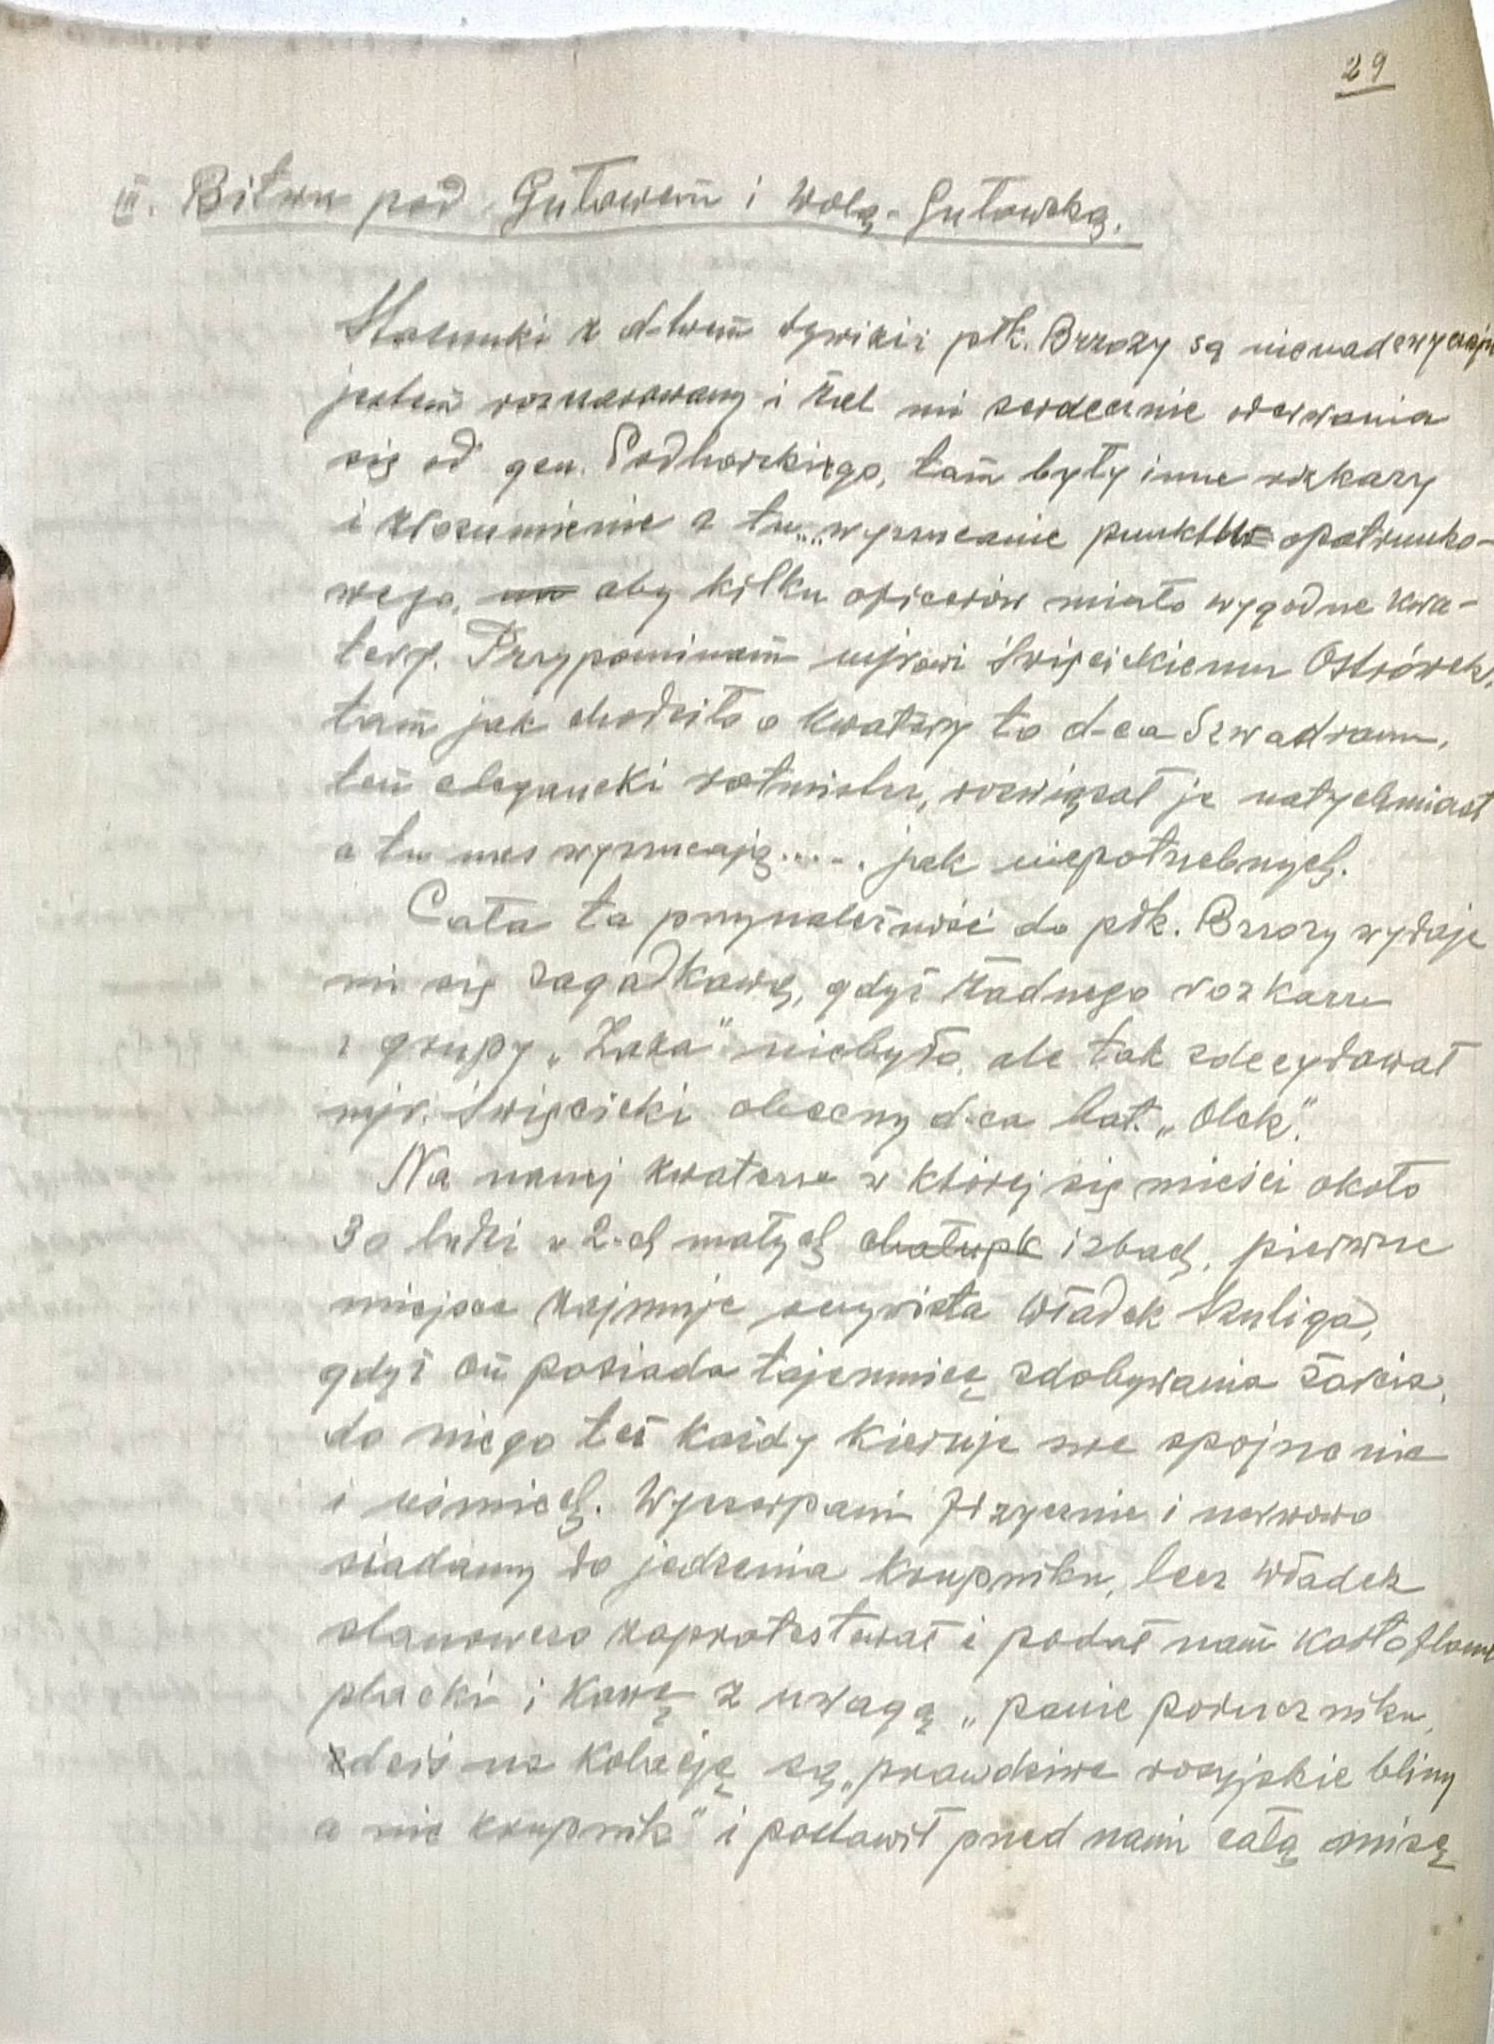 29
III. Bitwa pod Gułowem i Wolą-Gułowską.
Stosunki z d-twem dywizji płk. Brzozy są nienadzwyczajne
jestem rozżalony i żal mi serdecznie oderwania
się od gen. Podhorskiego, tam były inne rozkazy
i zrozumienie a tu.... wyrzucanie punktu opatrunko-
wego, aby kilku oficerów miało wygodne kwa-
tery. Przypominam mjrowi Święcickiemu Ostrówek,
tam jak chodziło o kwatery to d-ca szwadronu,
ten elegancki rotmistrz, rozwiązał je natychmiast
a tu nas wyrzucają..... jak niepotrzebnych.
Cała ta przynależność do płk. Brzozy wydaje
mi się zagadkową, gdyż żadnego rozkazu
z grupy „Zaza" niebyło, ale tak zdecydował
mjr. Święcicki obecny d-ca bat. „Olek".
Na naszej kwaterze w której się mieści około
30 ludzi w 2-ch małych chałupk izbach, pierwsze
miejsce zajmuje Władek Szuliga,
gdyż on posiada tajemnicę zdobywania żarcia,
do niego też każdy kieruje swe spojrzenie
i uśmiech. Wyczerpani fizycznie i nerwowo
siadamy do jedzenia krupniku, lecz Władek
stanowczo zaprotestował i podał nam kartoflane
placki i kawę z uwagą „panie poruczniku,
dziś na kolację są „prawdziwe rosyjskie bliny
a nie krupnik" i postawił przed nami całą misę